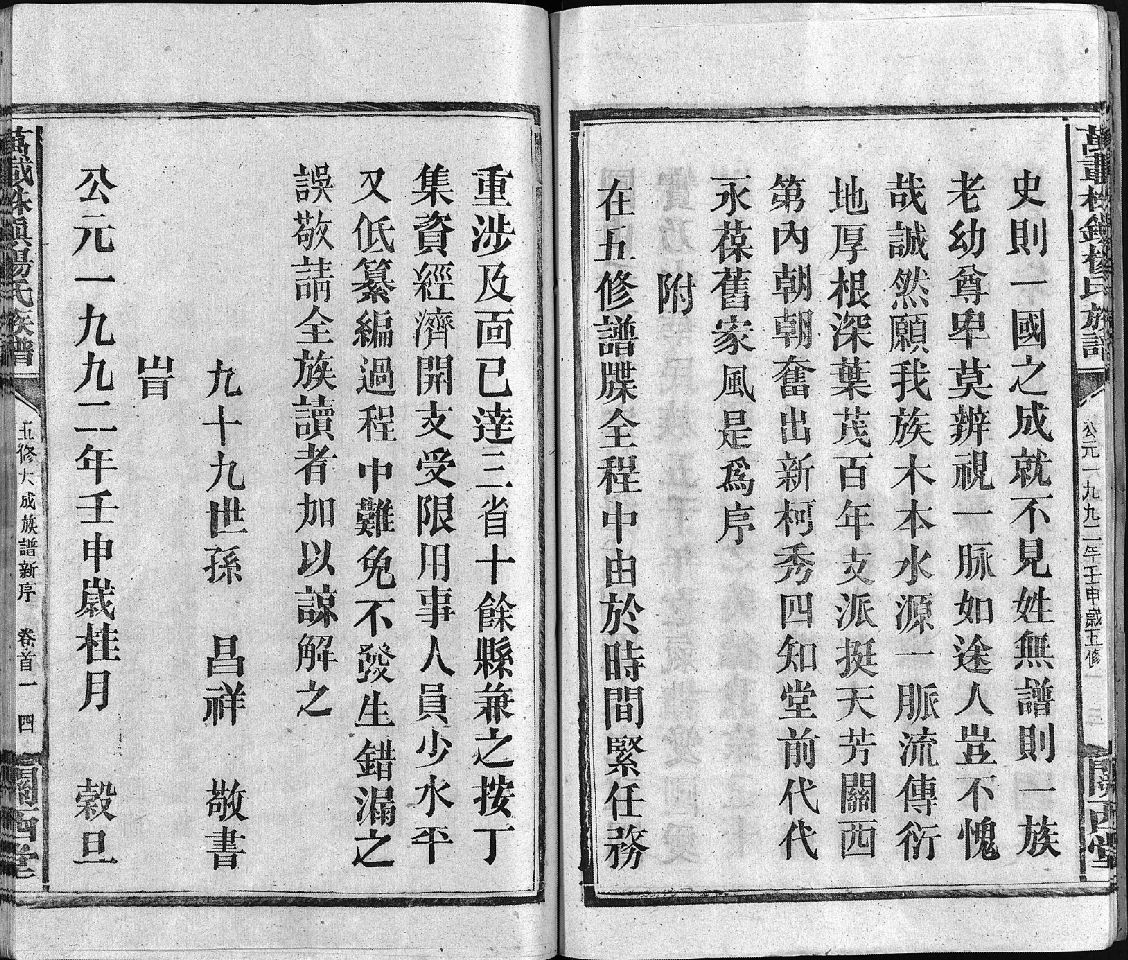 史則一國之成就不見姓無譜則一族
老幼尊卑莫辨視一脉如途人豈不愧
哉誠然願我族木本水源一脈流傳衍
地厚根深葉茂百年支派挺天芳關西
第內朝朝奮出新柯秀四知堂前代代
永葆舊家風是爲序
附
在五修譜牒全程中由於時間緊任務
重涉及面已達三省十餘縣兼之按丁
集資經濟開支受限用事人員少水平
又低纂編過程中難免不發生錯漏之
誤敬請全族讀者加以諒解之
九十九世孫 昌祥 敬書
旹
公元一九九二年壬申歲桂月 穀旦
公元一九九二年壬申歲五修 三
關西堂
萬載株鎮楊氏族譜
五修大成族譜新序 卷首一 四
關西堂